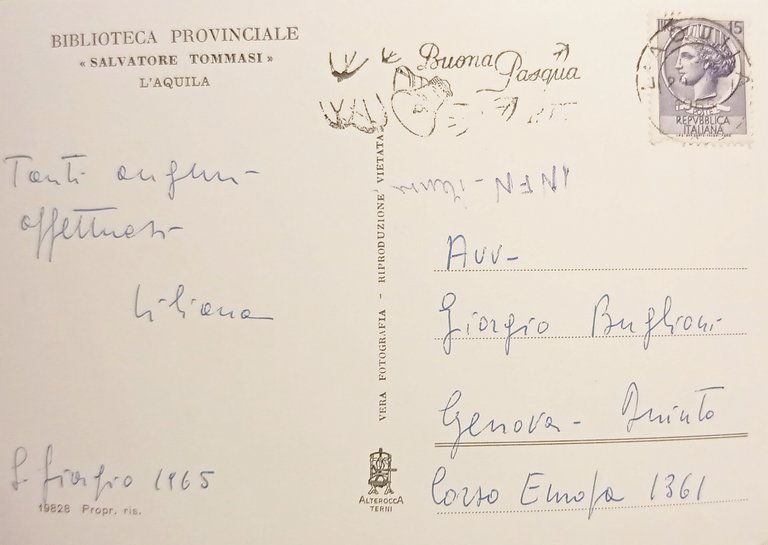 BIBLIOTECA PROVINCIALE
« SALVATORE TOMMASI »
L'AQUILA
Tanti auguri
affettuosi
Liliana
S. Giorgio 1965
19828 Propr. ris.
VERA FOTOGRAFIA - RIPRODUZIONE VIETATA
ALTEROCCA
TERNI
Buona Pasqua
L'AQUILA
15
POSTE
REPVBBLICA
ITALIANA
INFN -
Avv-
Giorgio Buglioni
Genova - Quinto
Corso Europa 1361